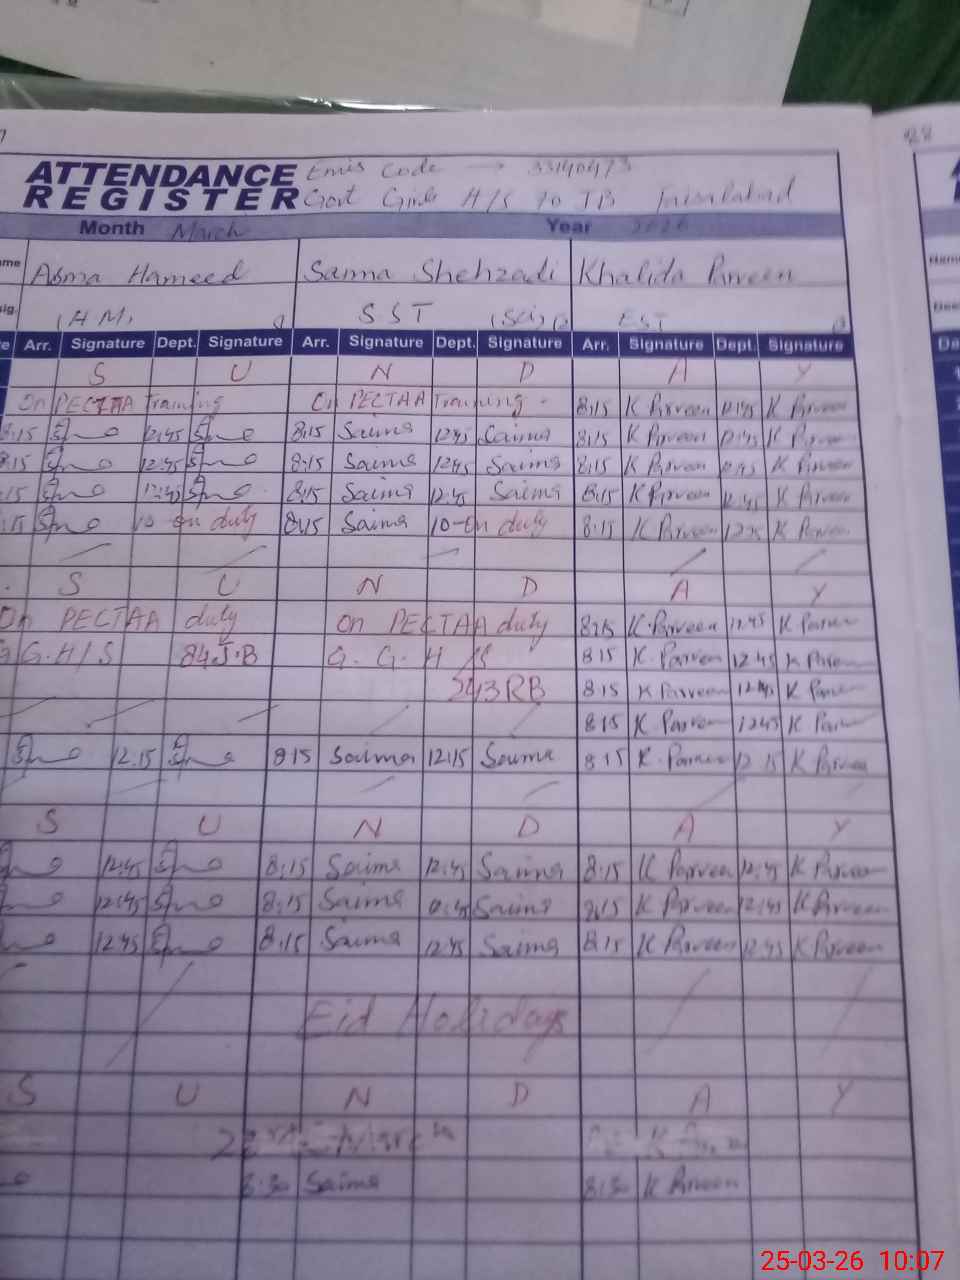 28
ATTENDANCE REGISTER Emis Code → 33140473
Govt Girls H/S 70 JB Faisalabad
Month March Year 2026
Asma Hameed Saima Shehzadi Khalida Parveen
(H M) SST (Sci) EST
Arr. Signature Dept. Signature Arr. Signature Dept. Signature Arr. Signature Dept. Signature
S U N D A Y
On PECTAA Training On PECTAA Training - 8:15 K Parveen 12:45 K Parveen
8:15 12:45 8:15 Saima 12:45 Saima 8:15 K Parveen 12:45 K Parveen
8:15 12:45 8:15 Saima 12:45 Saima 8:15 K Parveen 12:45 K Parveen
:15 12:45 8:15 Saima 12:45 Saima 8:15 K Parveen 12:45 K Parveen
:15 10 on duty 8:15 Saima 10-on duty 8:15 K Parveen K Parveen
S U N D A Y
On PECTAA duty On PECTAA duty 8:15 K.Parveen 12:45 K Parveen
G.H/S 84 J.B G. G. H/S 8:15 K.Parveen 12:45 K Parveen
243 RB 8:15 K Parveen 12:45 K Parveen
8:15 K.Parveen 12:45 K Parveen
12.15 8:15 Saima 12:15 Saima 8:15 K.Parveen 12:15 K Parveen
S U N D A Y
12:45 8:15 Saima 12:45 Saima 8:15 K Parveen 12:45 K Parveen
12:45 8:15 Saima Saima 8:15 K Parveen 12:45 K Parveen
12:45 8:15 Saima 12:45 Saima 8:15 K Parveen 12:45 K Parveen
Eid Holidays
S U N D A Y
8:30 Saima 8:30 K Parveen
25-03-26 10:07